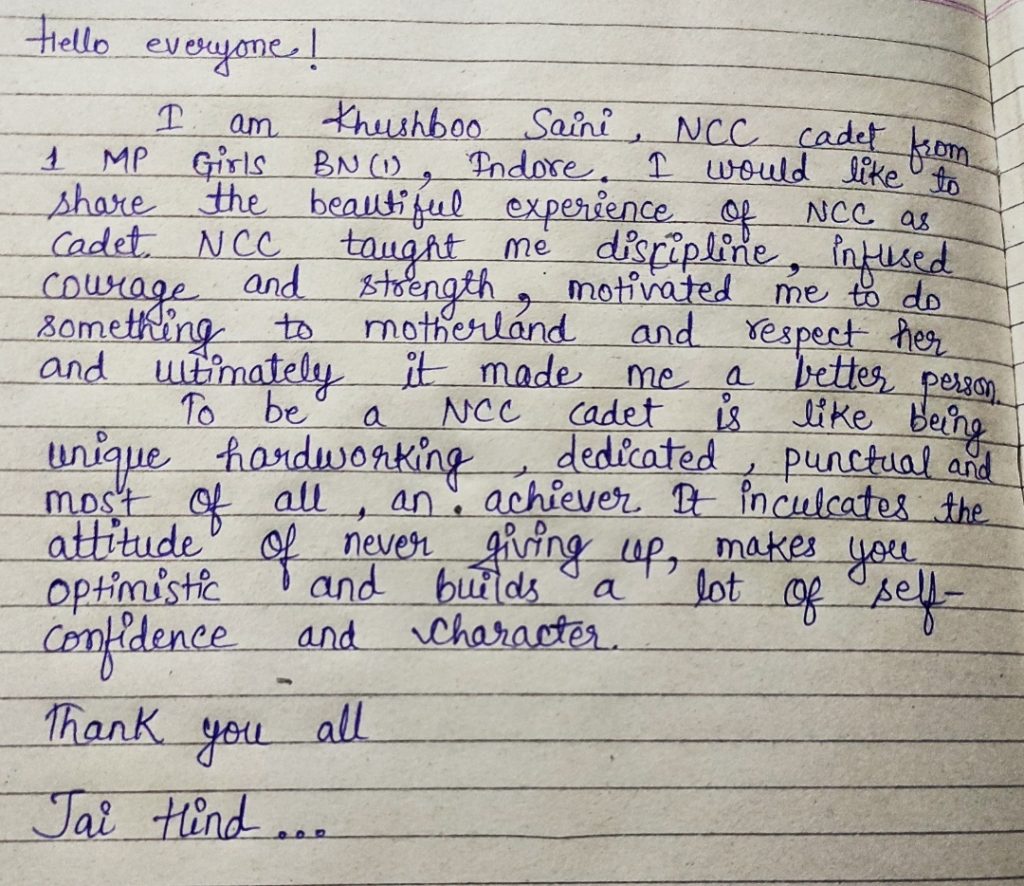 Hello everyone!
I am Khushboo Saini, NCC cadet from
1 MP Girls BN(1), Indore. I would like to
share the beautiful experience of NCC as
Cadet. NCC taught me discipline, infused
courage and strength, motivated me to do
something to motherland and respect her
and ultimately it made me a better person.
To be a NCC cadet is like being
unique hardworking, dedicated, punctual and
most of all, an achiever. It inculcates the
attitude of never giving up, makes you
optimistic and builds a lot of self-
confidence and Character.
Thank you all
Jai Hind...